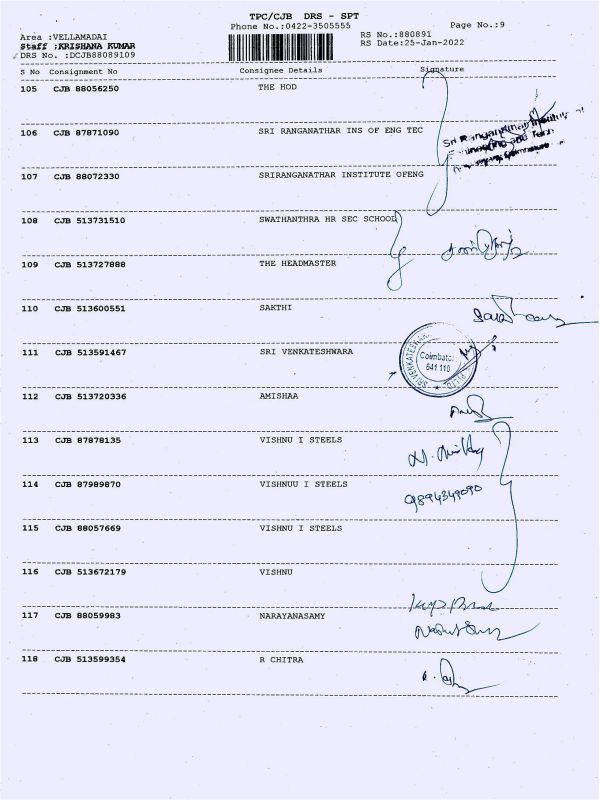 TPC/CJB DRS - SPT
Phone No.:0422-3505555
Page No.:9
Area :VELLAMADAI
RS No.:880891
Staff :KRISHANA KUMAR
RS Date:25-Jan-2022
DRS No. :DCJB88089109
S No Consignment No Consignee Details Signature
105 CJB 88056250 THE HOD
106 CJB 87871090 SRI RANGANATHAR INS OF ENG TEC
Sri Ranganathar Institute of
107 CJB 88072330 SRIRANGANATHAR INSTITUTE OFENG
108 CJB 513731510 SWATHANTHRA HR SEC SCHOOL
109 CJB 513727888 THE HEADMASTER
110 CJB 513600551 SAKTHI
111 CJB 513591467 SRI VENKATESHWARA
Coimbato
641 110
112 CJB 513720336 AMISHAA
113 CJB 87878135 VISHNU I STEELS
114 CJB 87989870 VISHNUU I STEELS
9894349090
115 CJB 88057669 VISHNU I STEELS
116 CJB 513672179 VISHNU
117 CJB 88059983 NARAYANASAMY
118 CJB 513599354 R CHITRA